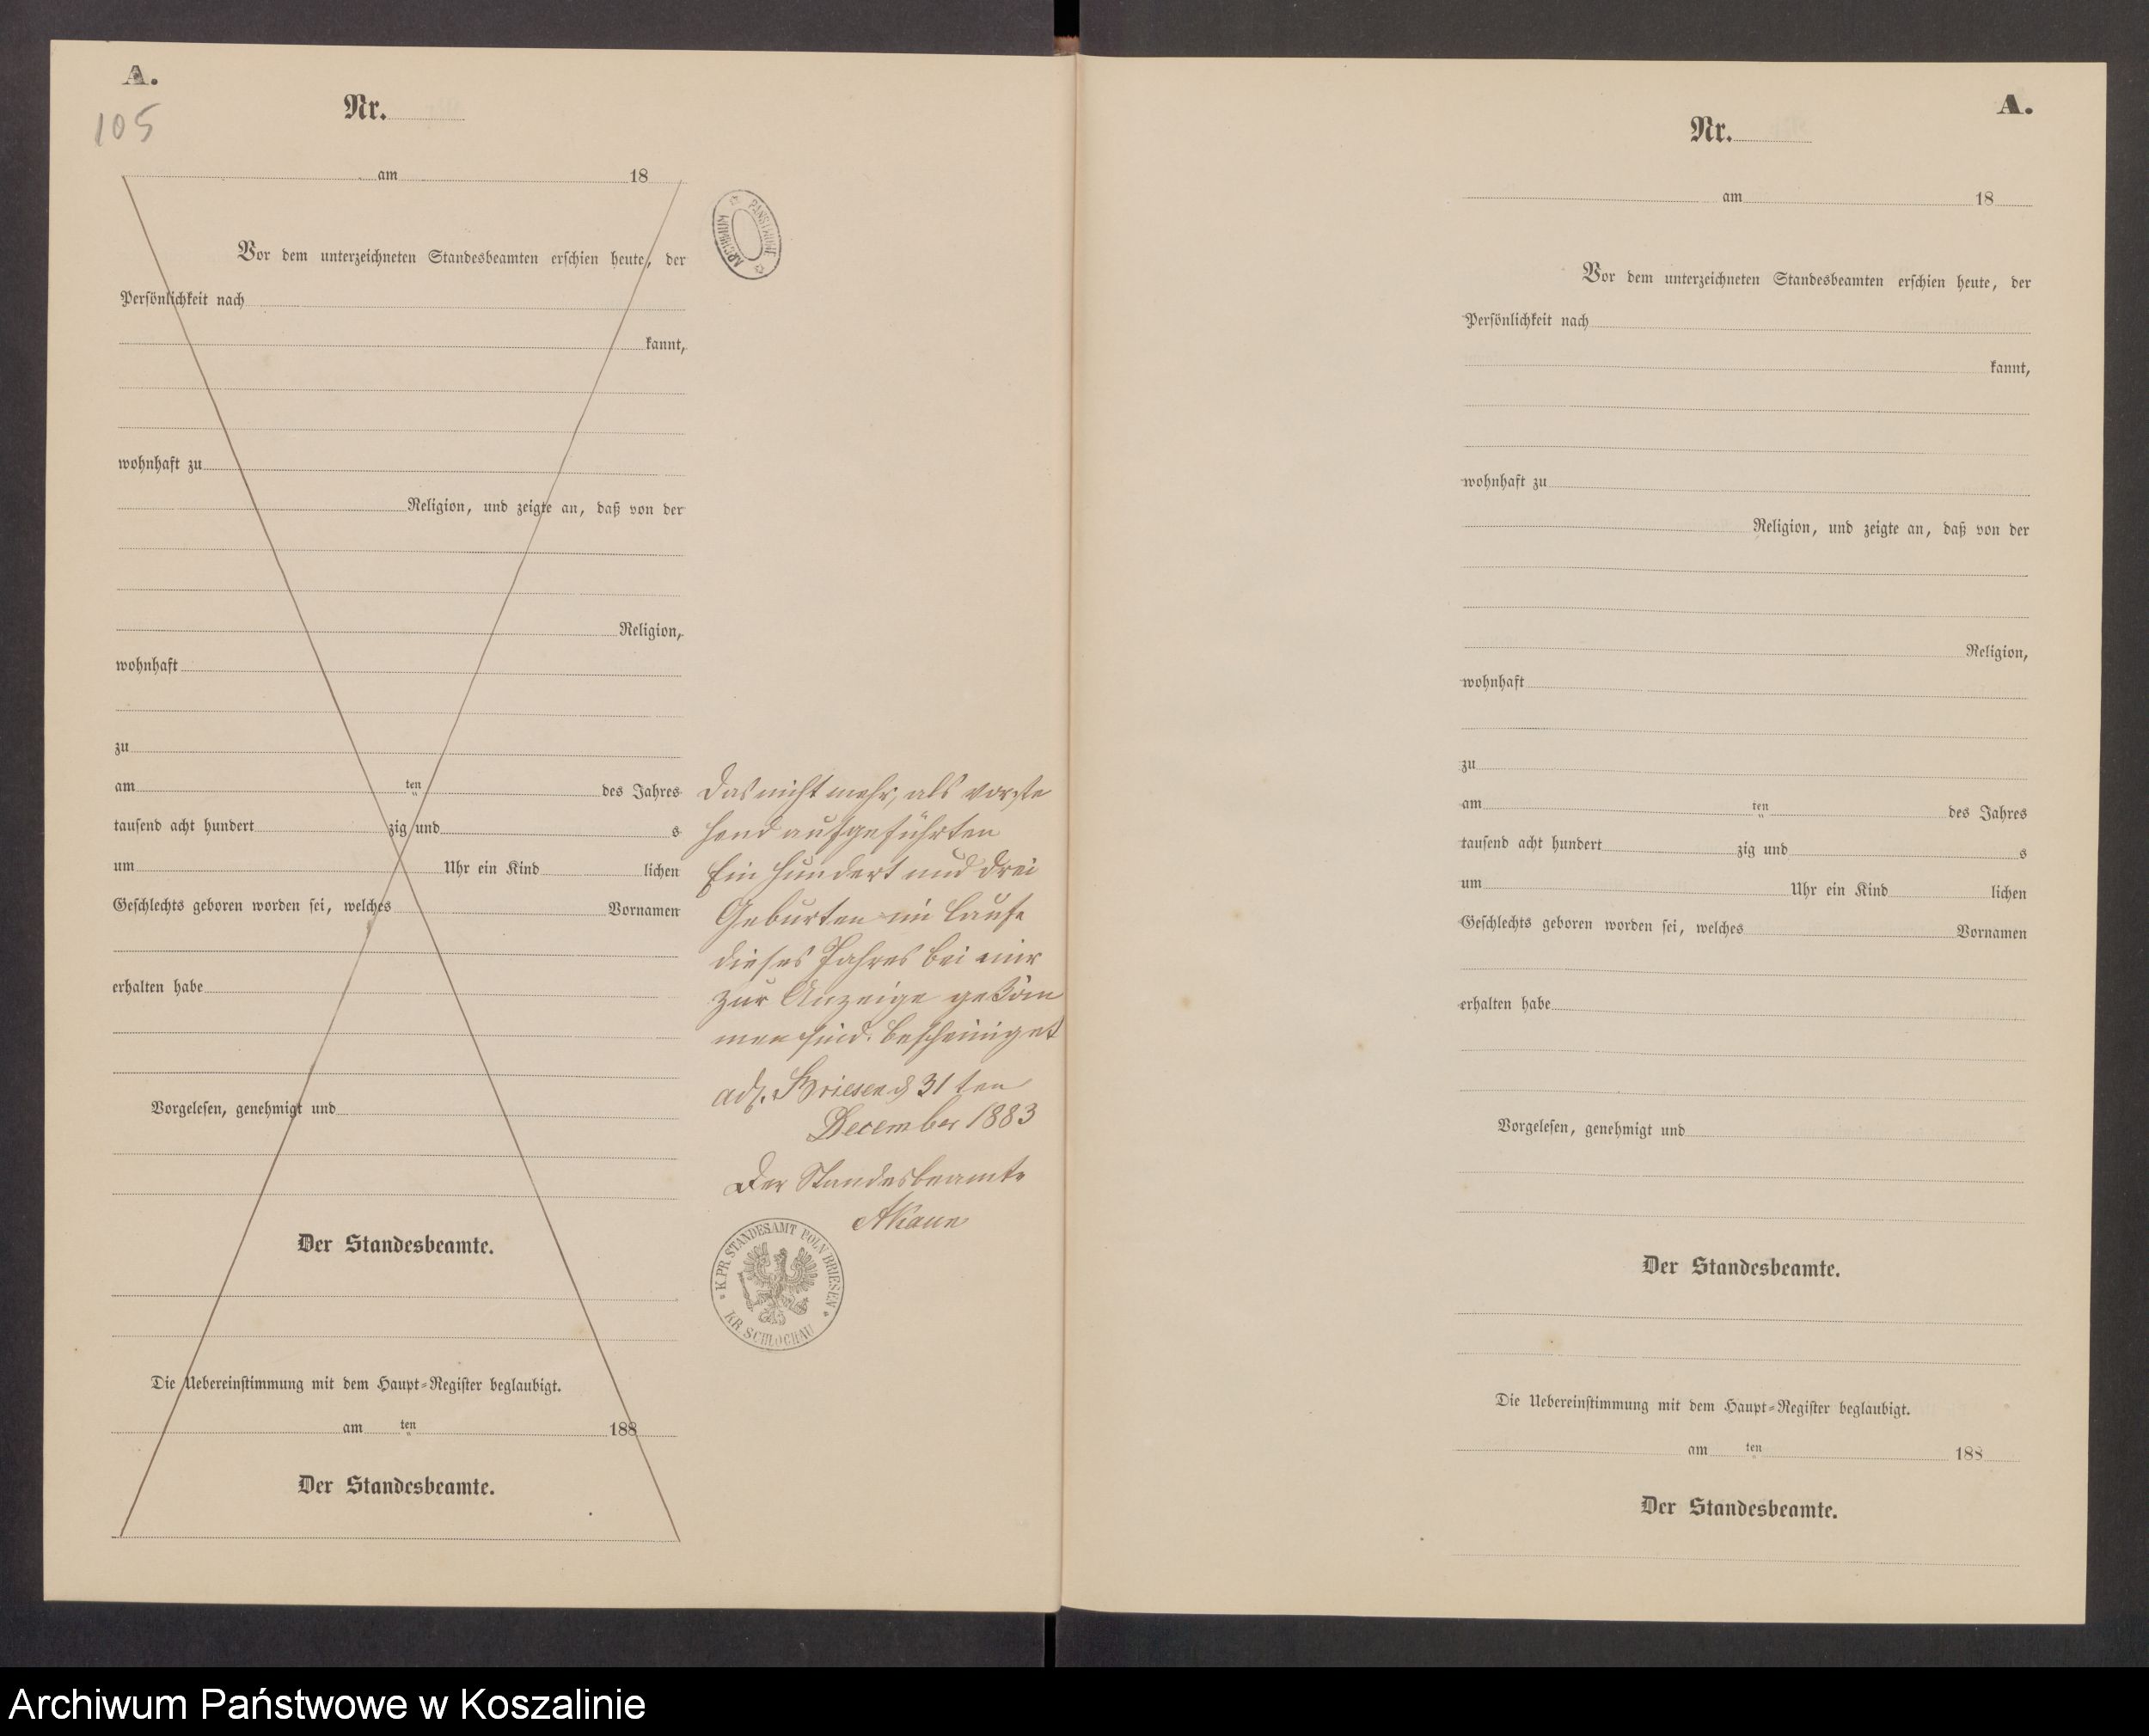 A.
105
Nr.
am 18
Vor dem unterzeichneten Standesbeamten erschien heute, der
Persönlichkeit nach
kannt,
wohnhaft zu
Religion, und zeigte an, daß von der
Religion,
wohnhaft
zu
am ten des Jahres
tausend acht hundert zig und s
um Uhr ein Kind lichen
Geschlechts geboren worden sei, welches Vornamen
erhalten habe
Vorgelesen, genehmigt und
Der Standesbeamte.
Die Uebereinstimmung mit dem Haupt=Register beglaubigt.
am ten 188
Der Standesbeamte.
ARCHIWUM PAŃSTWOWE
Das nicht mehr, als vorste
hend aufgeführten
Ein hundert und drei
Geburten im Laufe
dieses Jahres bei mir
zur Anzeige gekom
men sind. bescheiniget
adl. Briesen d 31 ten
December 1883
Der Standesbeamte
K. PR. STANDESAMT POLN BRIESEN
KR SCHLOCHAU
A.
Nr.
am 18
Vor dem unterzeichneten Standesbeamten erschien heute, der
Persönlichkeit nach
kannt,
wohnhaft zu
Religion, und zeigte an, daß von der
Religion,
wohnhaft
zu
am ten des Jahres
tausend acht hundert zig und s
um Uhr ein Kind lichen
Geschlechts geboren worden sei, welches Vornamen
erhalten habe
Vorgelesen, genehmigt und
Der Standesbeamte.
Die Uebereinstimmung mit dem Haupt=Register beglaubigt.
am ten 188
Der Standesbeamte.
Archiwum Państwowe w Koszalinie